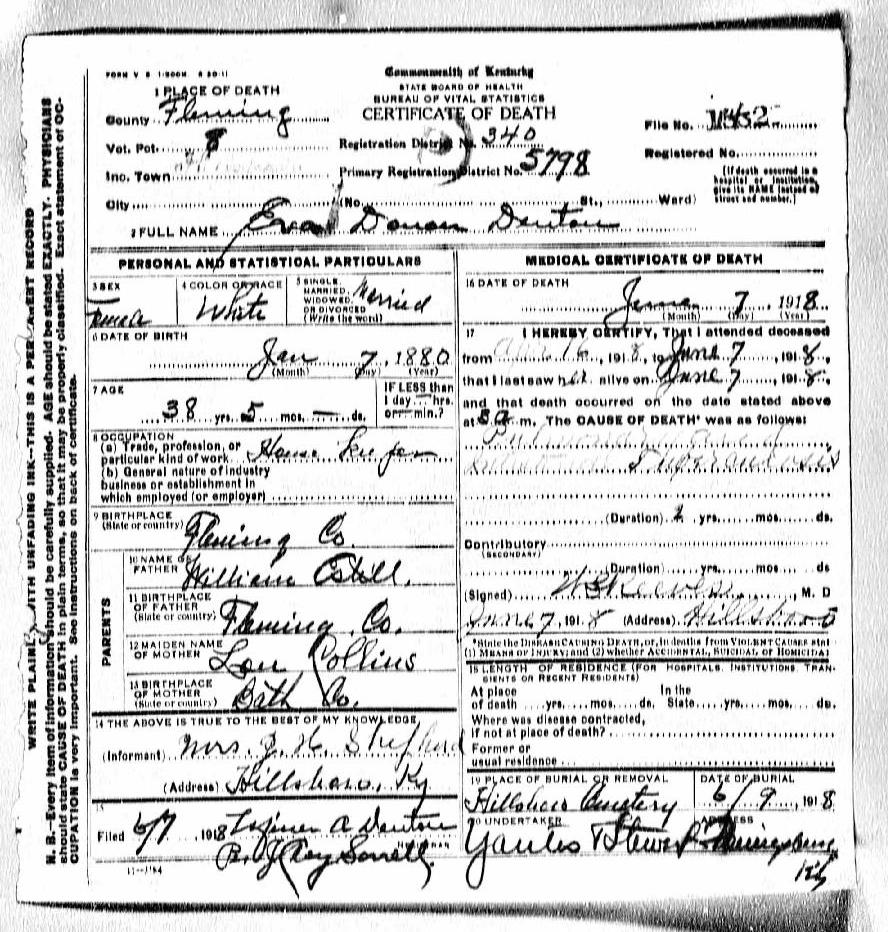 FORM V S 1-500M 8 20-11
Commonwealth of Kentucky
STATE BOARD OF HEALTH
BUREAU OF VITAL STATISTICS
CERTIFICATE OF DEATH
1 PLACE OF DEATH
County Fleming
Vot. Pct. 8
Inc. Town
City
Registration District No. 340
Primary Registration District No. 5798
(No. St., Ward)
File No.
Registered No.
[If death occurred in a
hospital or institution,
give its NAME instead of
street and number.]
2 FULL NAME Eva Denton
PERSONAL AND STATISTICAL PARTICULARS
3 SEX
4 COLOR OR RACE
White
5 SINGLE,
MARRIED,
WIDOWED,
OR DIVORCED
(Write the word)
Married
6 DATE OF BIRTH
Jan 7, 1880
(Month) (Day) (Year)
7 AGE
38 yrs. 5 mos. — ds.
IF LESS than
1 day — hrs.
or — min.?
8 OCCUPATION
(a) Trade, profession, or
particular kind of work House keeper
(b) General nature of industry
business or establishment in
which employed (or employer)
9 BIRTHPLACE
(State or country) Fleming Co.
PARENTS
10 NAME OF
FATHER William Estill.
11 BIRTHPLACE
OF FATHER
(State or country) Fleming Co.
12 MAIDEN NAME
OF MOTHER Lou Collins
13 BIRTHPLACE
OF MOTHER
(State or country) Bath Co.
14 THE ABOVE IS TRUE TO THE BEST OF MY KNOWLEDGE
(Informant) Mrs. J. H. Shepherd
(Address) Hillsboro, Ky
15
Filed 6/7 1918 A Denton
Roy Sorrell
11-3184
MEDICAL CERTIFICATE OF DEATH
16 DATE OF DEATH
June 7, 1918
(Month) (Day) (Year)
17 I HEREBY CERTIFY, That I attended deceased
from Apr 16, 1918, to June 7, 1918,
that I last saw her alive on June 7, 1918,
and that death occurred on the date stated above
at m. The CAUSE OF DEATH* was as follows:
Pulmonary and
Tuberculosis
(Duration) yrs. mos. ds.
Contributory
(SECONDARY)
(Duration) yrs. mos. ds
(Signed) Reeves, M. D
June 7, 1918 (Address) Hillsboro
*State the DISEASE CAUSING DEATH, or, in deaths from VIOLENT CAUSES state
(1) MEANS OF INJURY; and (2) whether ACCIDENTAL, SUICIDAL, or HOMICIDAL
18 LENGTH OF RESIDENCE (FOR HOSPITALS, INSTITUTIONS, TRAN-
SIENTS OR RECENT RESIDENTS)
At place In the
of death yrs. mos. ds. State yrs. mos. ds.
Where was disease contracted,
if not at place of death?
Former or
usual residence
19 PLACE OF BURIAL OR REMOVAL
Hillsboro Cemetery
DATE OF BURIAL
6/9, 1918
20 UNDERTAKER
ADDRESS
Flemingsburg
Ky
WRITE PLAINLY, WITH UNFADING INK—THIS IS A PERMANENT RECORD
N. B.—Every item of information should be carefully supplied. AGE should be stated EXACTLY. PHYSICIANS
should state CAUSE OF DEATH in plain terms, so that it may be properly classified. Exact statement of OC-
CUPATION is very important. See instructions on back of certificate.